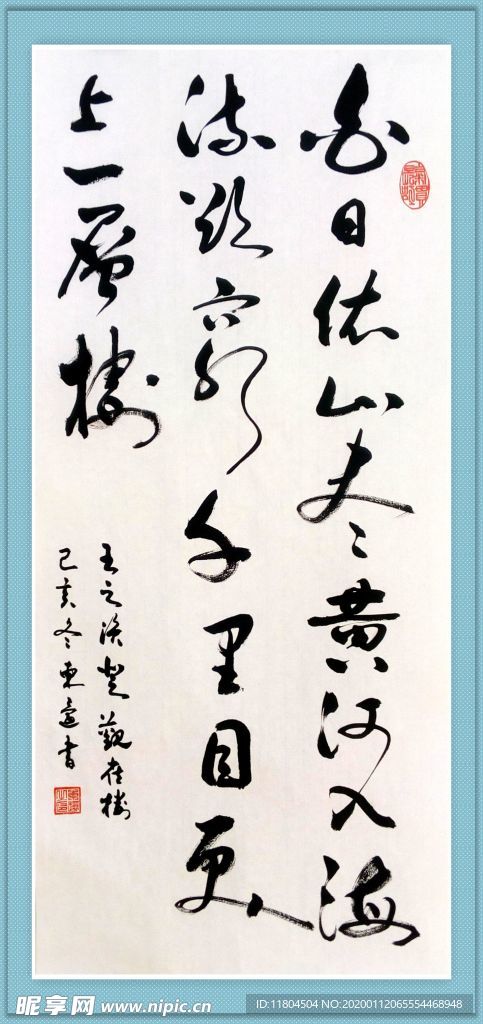 白日依山尽黄河入海
流欲穷千里目更
上一层楼
王之涣登鹳雀楼
己亥冬东鲁书
昵享网 www.nipic.cn
ID:11804504 NO:20200112065554468948